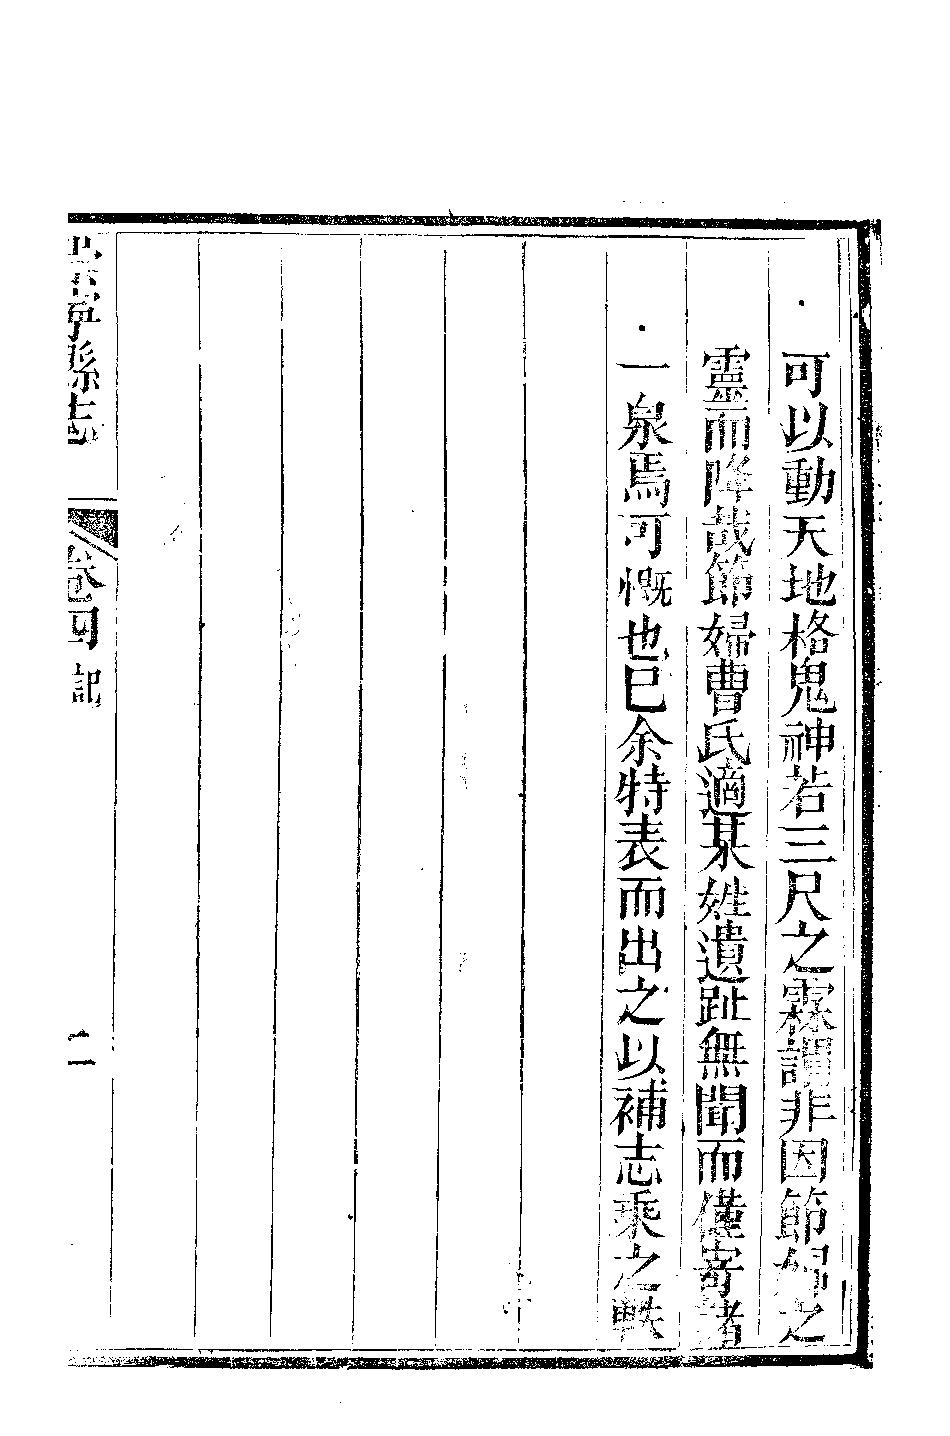 可以動天地格鬼神若三尺之霖謂非因節婦之
靈而降哉節婦曹氏適某姓遺趾無聞而僅寄諸
一泉焉可慨也已余特表而出之以補志乘之軼
崇寧縣志
卷四 記
二